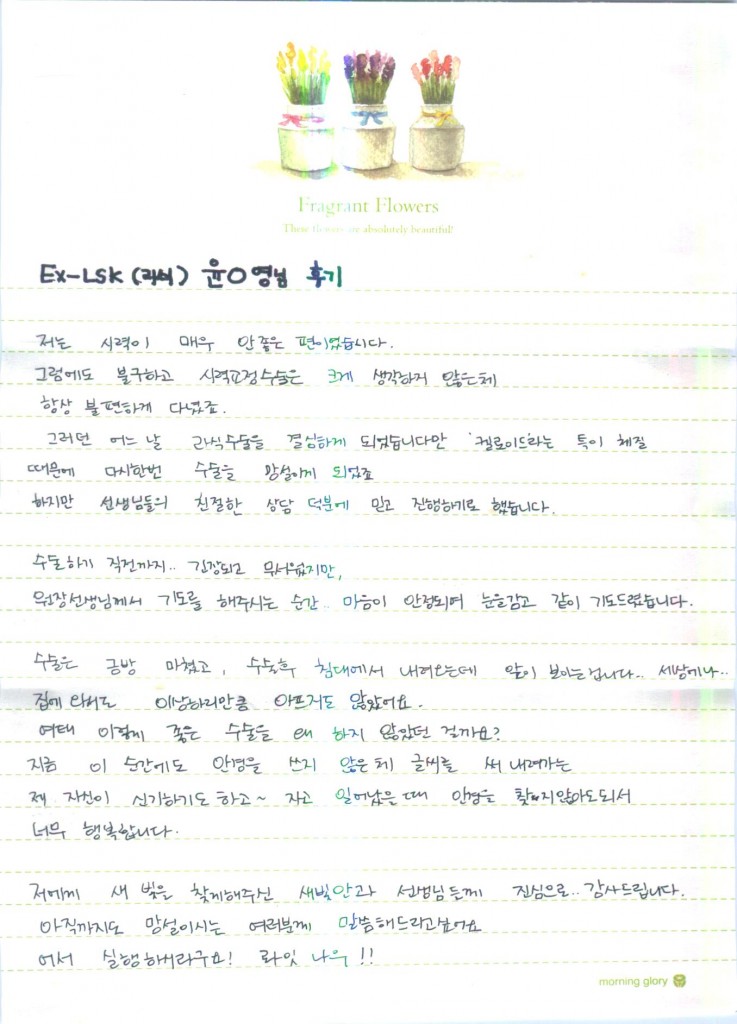 Fragrant Flowers
These flowers are absolutely beautiful!
Ex-LSK (라식) 윤O영님 후기
저는 시력이 매우 안좋은 편이었습니다.
그럼에도 불구하고 시력교정수술은 크게 생각하지 않은체
항상 불편하게 다녔죠.
그러던 어느 날 라식수술을 결심하게 되었습니다만 '켈로이드'라는 특이 체질
때문에 다시한번 수술을 망설이게 되었죠
하지만 선생님들의 친절한 상담 덕분에 믿고 진행하기로 했습니다.
수술하기 직전까지.. 긴장되고 무서웠지만,
원장선생님께서 기도를 해주시는 순간.. 마음이 안정되며 눈을감고 같이 기도드렸습니다.
수술은 금방 마쳤고, 수술후 침대에서 내려오는데 앞이 보이는겁니다.. 세상에나..
집에 와서도 이상하리만큼 아프지도 않았어요.
여태 이렇게 좋은 수술을 왜 하지 않았던 걸까요?
지금 이 순간에도 안경을 쓰지 않은체 글씨를 써 내려가는
제 자신이 신기하기도 하고~ 자고 일어났은때 안경을 찾지않아도되서
너무 행복합니다.
저에게 새 빛을 찾게해주신 새빛안과 선생님들께 진심으로.. 감사드립니다.
아직까지도 망설이시는 여러분께 말씀해드리고싶어요
어서 실행하시라구요! 롸잇 나우!!
morning glory